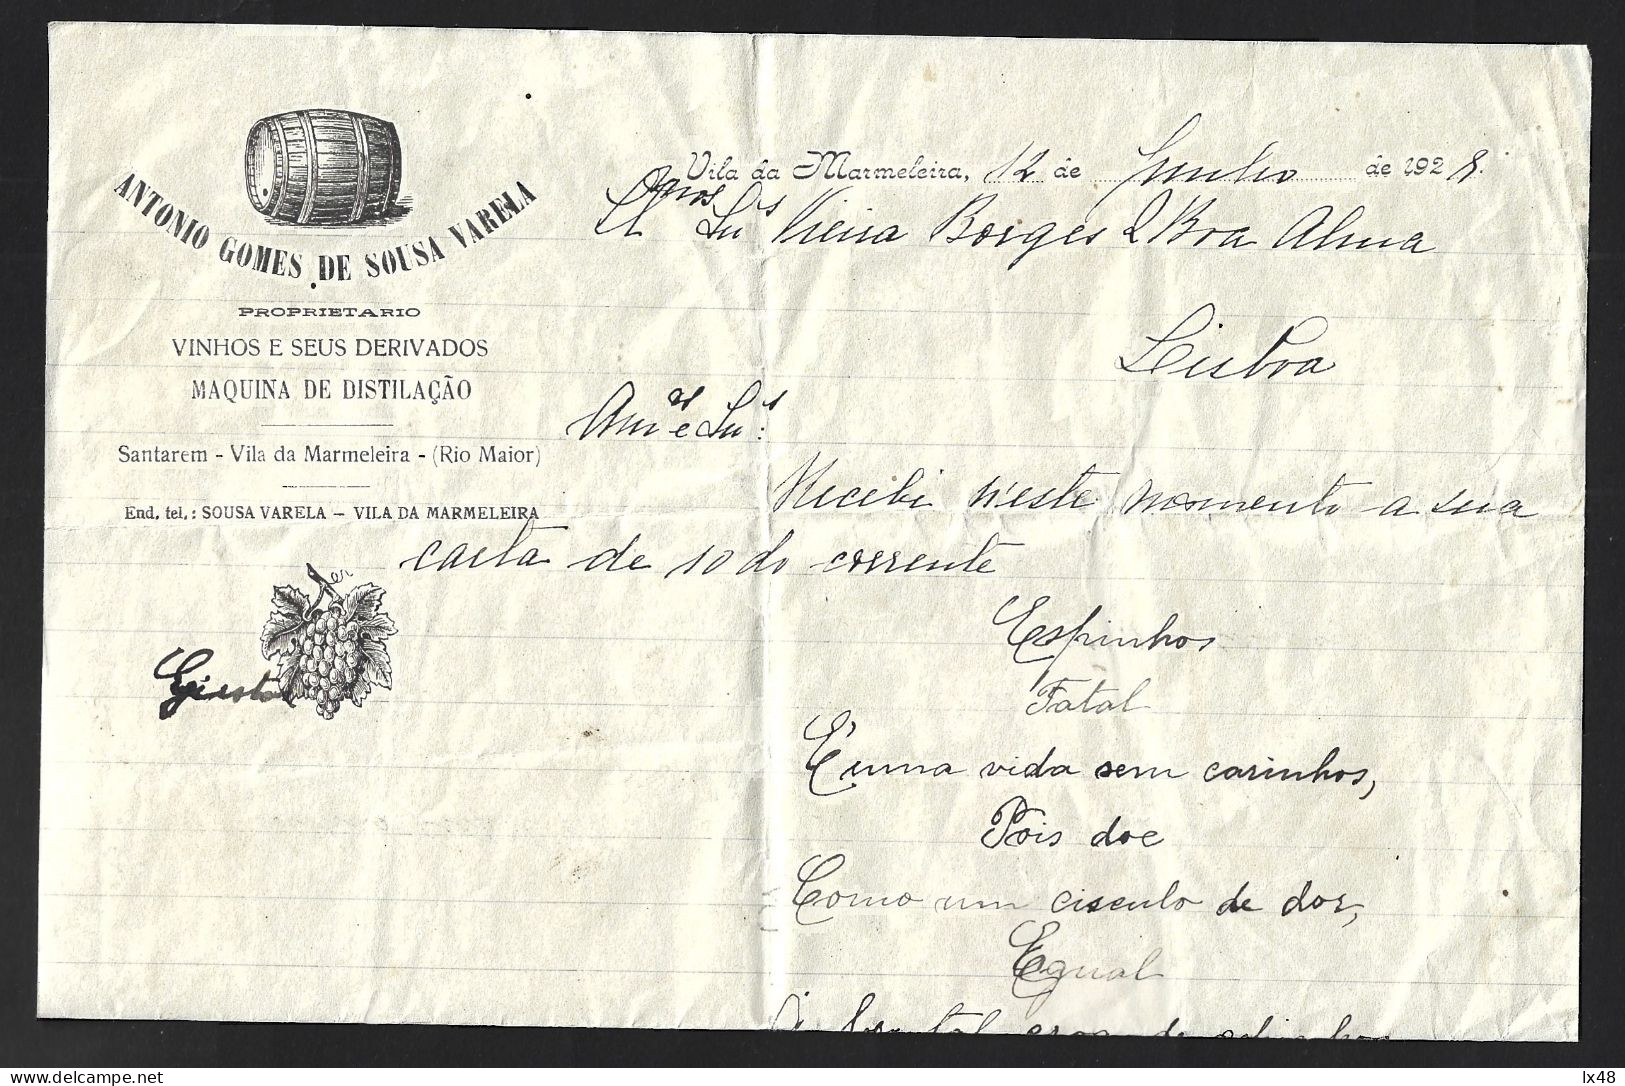 ANTONIO GOMES DE SOUSA VARELA
PROPRIETARIO
VINHOS E SEUS DERIVADOS
MAQUINA DE DISTILAÇÃO
Santarem - Vila da Marmeleira - (Rio Maior)
End. tel.: SOUSA VARELA - VILA DA MARMELEIRA
Vila da Marmeleira, 12 de Junho de 1928.
Vieira Borges & Boa Alma
Lisboa
Am.os e Sn.s:
Recebi n'este momento a sua
carta de 10 do corrente
Espinhos
Fatal
E' uma vida sem carinhos,
Pois doe
Como um circulo de dor,
Egual
delcampe.net
lx48